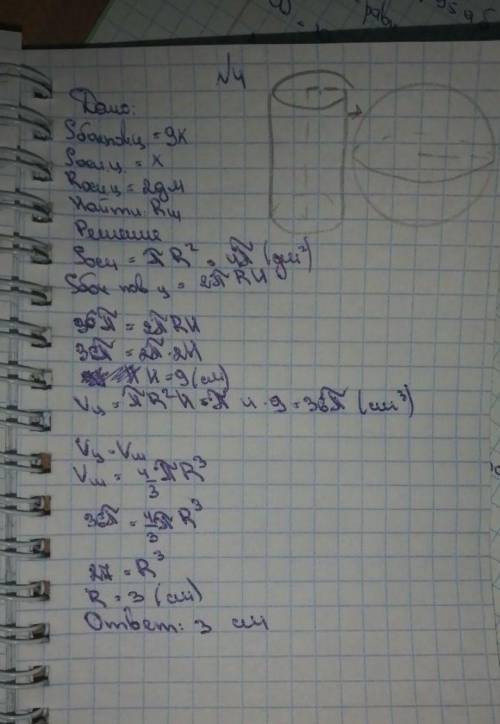 №4
Дано:
Sбок пов ц = 9x
Sосн ц = x
Rосн ц = 2дм
Найти: Rш
Решение
Sосн = πR² = 4π (дм²)
Sбок пов ц = 2πRH
36π = 2πRH
36π = 2π·2H
H = 9 (см)
Vц = πR²H = π 4·9 = 36π (см³)
Vц = Vш
Vш = 4/3 πR³
36π = 4/3 πR³
27 = R³
R = 3 (см)
Ответ: 3 см